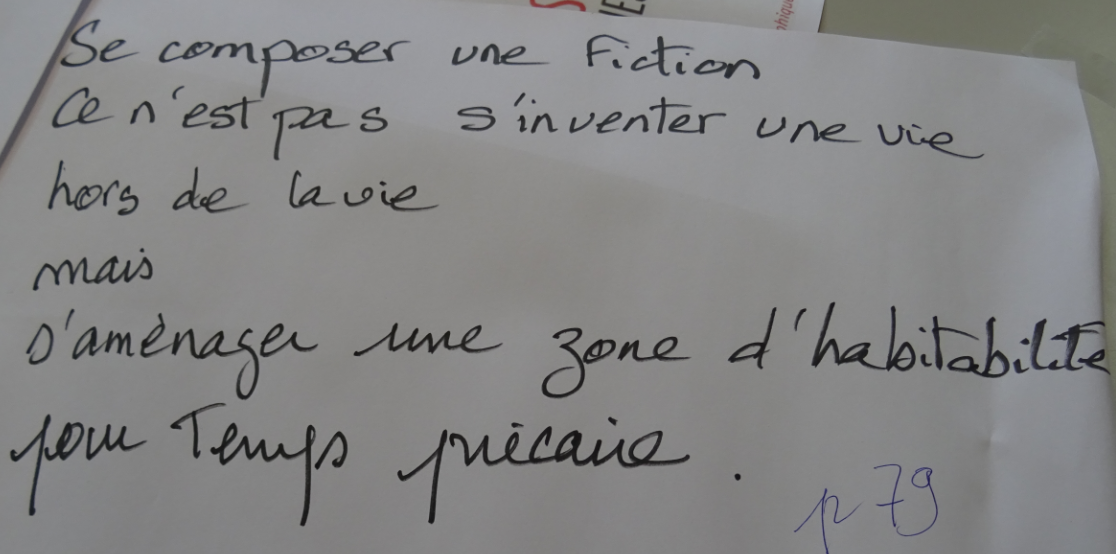 Se composer une fiction
Ce n'est pas s'inventer une vie
hors de la vie
mais
s'aménager une zone d'habitabilité
pour Temps précaire.
p 79